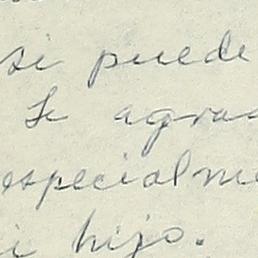 si puede
Le agrad
especialme
i hijo.